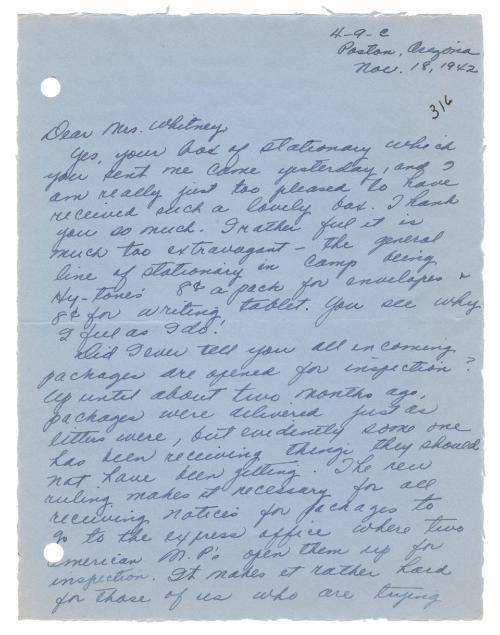 4-9-C
Poston, Arizona
Nov. 18, 1942
316
Dear Mrs. Whitney,
Yes, your box of stationary which
you sent me came yesterday, and I
am really just too pleased to have
received such a lovely box. Thank
you so much. I rather feel it is
much too extravagant – the general
line of stationary in camp being
Hy-tone's 8¢ a pack for envelopes &
8¢ for writing tablet. You see why
I feel as I do!
Did I ever tell you all incoming
packages are opened for inspection?
Up until about two months ago,
packages were delivered just as
letters were, but evidently some one
has been receiving things they should
not have been getting. The new
ruling makes it necessary for all
receiving notices for packages to
go to the express office where two
American M.P.'s open them up for
inspection. It makes it rather hard
for those of us who are trying